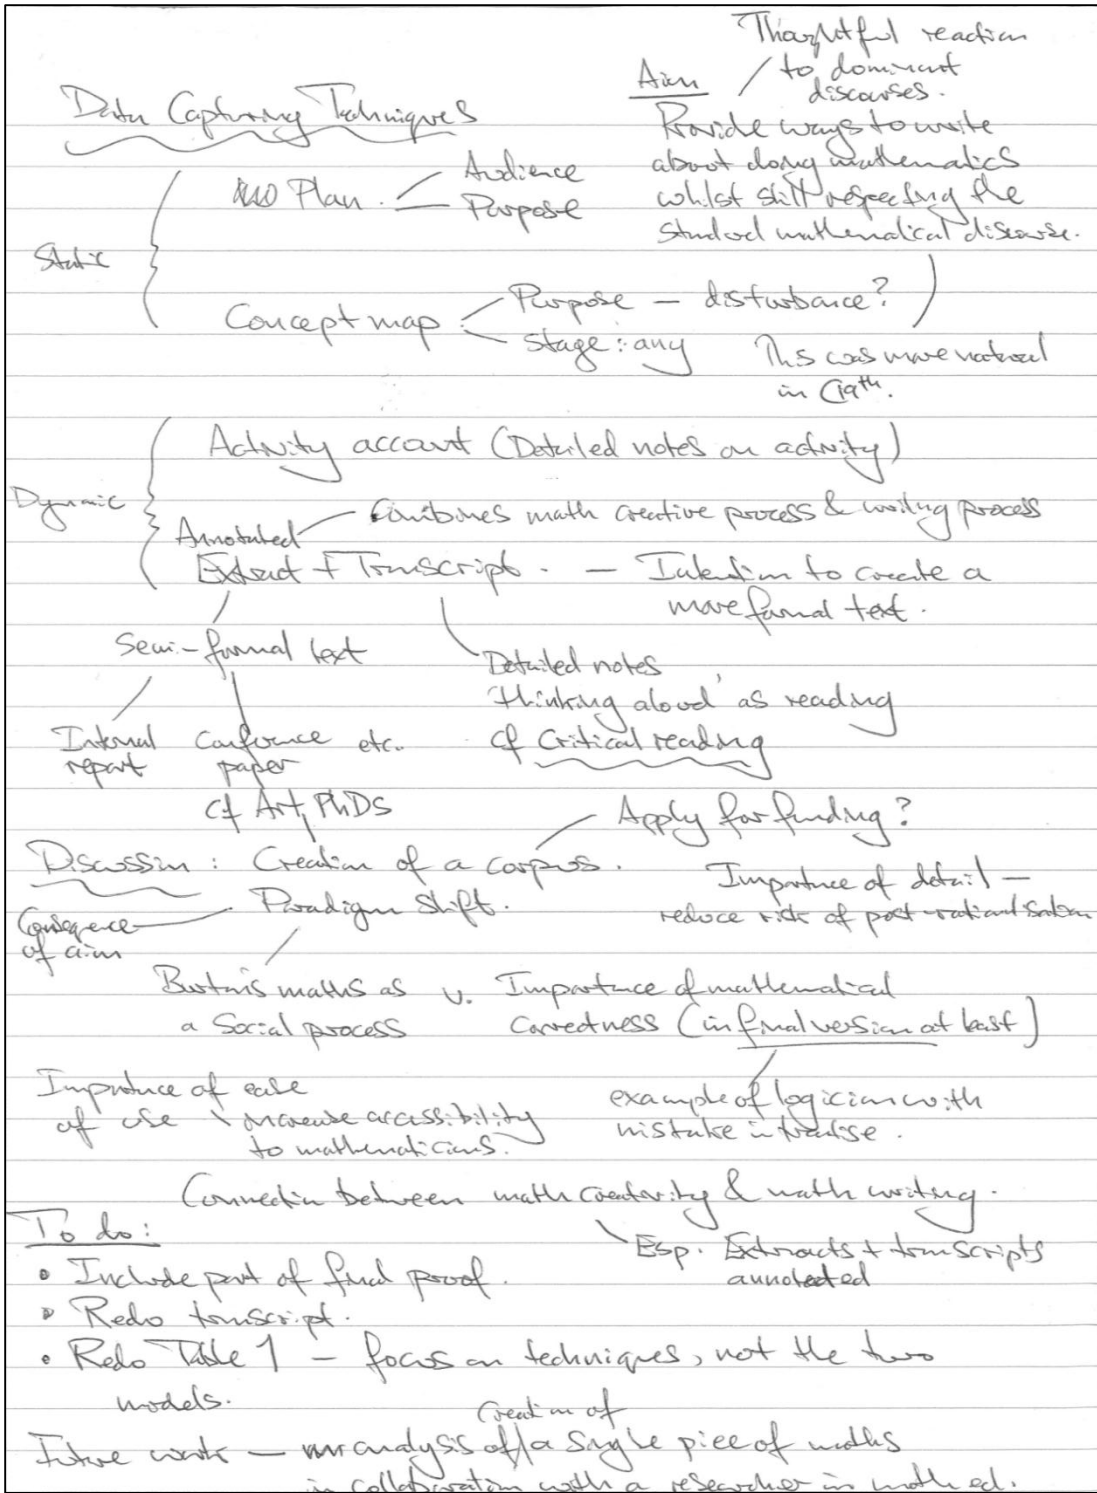 Thoughtful reaction
to dominant
discourses.
Aim
Data Capturing Techniques
Provide ways to write
about doing mathematics
whilst still respecting the
standard mathematical discourse.
Plan.
Audience
Purpose
Static
Concept map :
Purpose — disturbance?
Stage : any
This was more natural
in C19th.
Activity account (Detailed notes on activity)
Dynamic
Combines math creative process & writing process
Annotated
Extract + Transcript. — Intention to create a
more formal text.
Semi-formal text
Detailed notes
'thinking aloud' as reading
cf Critical reading
Internal
report
Conference etc.
paper
cf Art, PhDs
Apply for funding?
Discussion : Creation of a corpus.
Importance of detail —
reduce risk of post-rationalisation
Paradigm shift.
Consequence
of aim
Burton's maths as
a Social process
v. Importance of mathematical
correctness (in final version at least)
Importance of ease
of use
increase accessibility
to mathematicians.
example of logician with
mistake in treatise.
Connection between math creativity & math writing.
Esp. Extracts + transcripts
annotated
To do:
• Include part of final proof.
• Redo transcript.
• Redo Table 1 — focus on techniques, not the two
models.
Creation of
Future work — analysis of / a single piece of maths
in collaboration with a researcher in math ed.